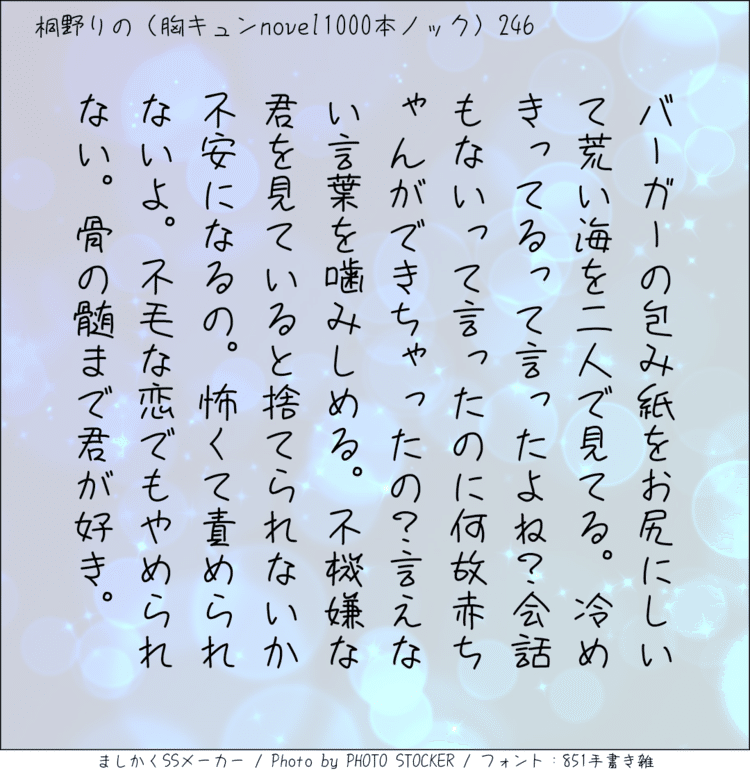 桐野りの（胸キュンnovel1000本ノック）246
バーガーの包み紙をお尻にしい
て荒い海を二人で見てる。冷め
きってるって言ったよね？会話
もないって言ったのに何故赤ち
ゃんができちゃったの？言えな
い言葉を噛みしめる。不機嫌な
君を見ていると捨てられないか
不安になるの。怖くて責められ
ないよ。不毛な恋でもやめられ
ない。骨の髄まで君が好き。
ましかくSSメーカー / Photo by PHOTO STOCKER / フォント：851手書き雑